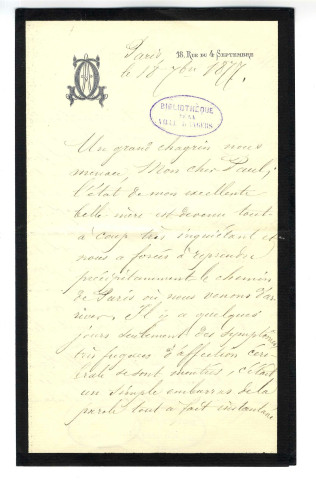 18, Rue du 4 Septembre
Paris,
le 18 7bre 1877.
BIBLIOTHÈQUE
DE LA
VILLE D'ANGERS
Un grand chagrin nous
menace, Mon cher Pauly;
l'état de mon excellente
belle mère est devenu tout
à coup très inquiétant et
nous a forcés à reprendre
précipitamment le chemin
de Paris où nous venons d'ar
river. Il y a quelques
jours seulement des symptômes
très fugaces d'affection céré
brale se sont montrés, c'était
un simple embarras de la
parole tout à fait instantané